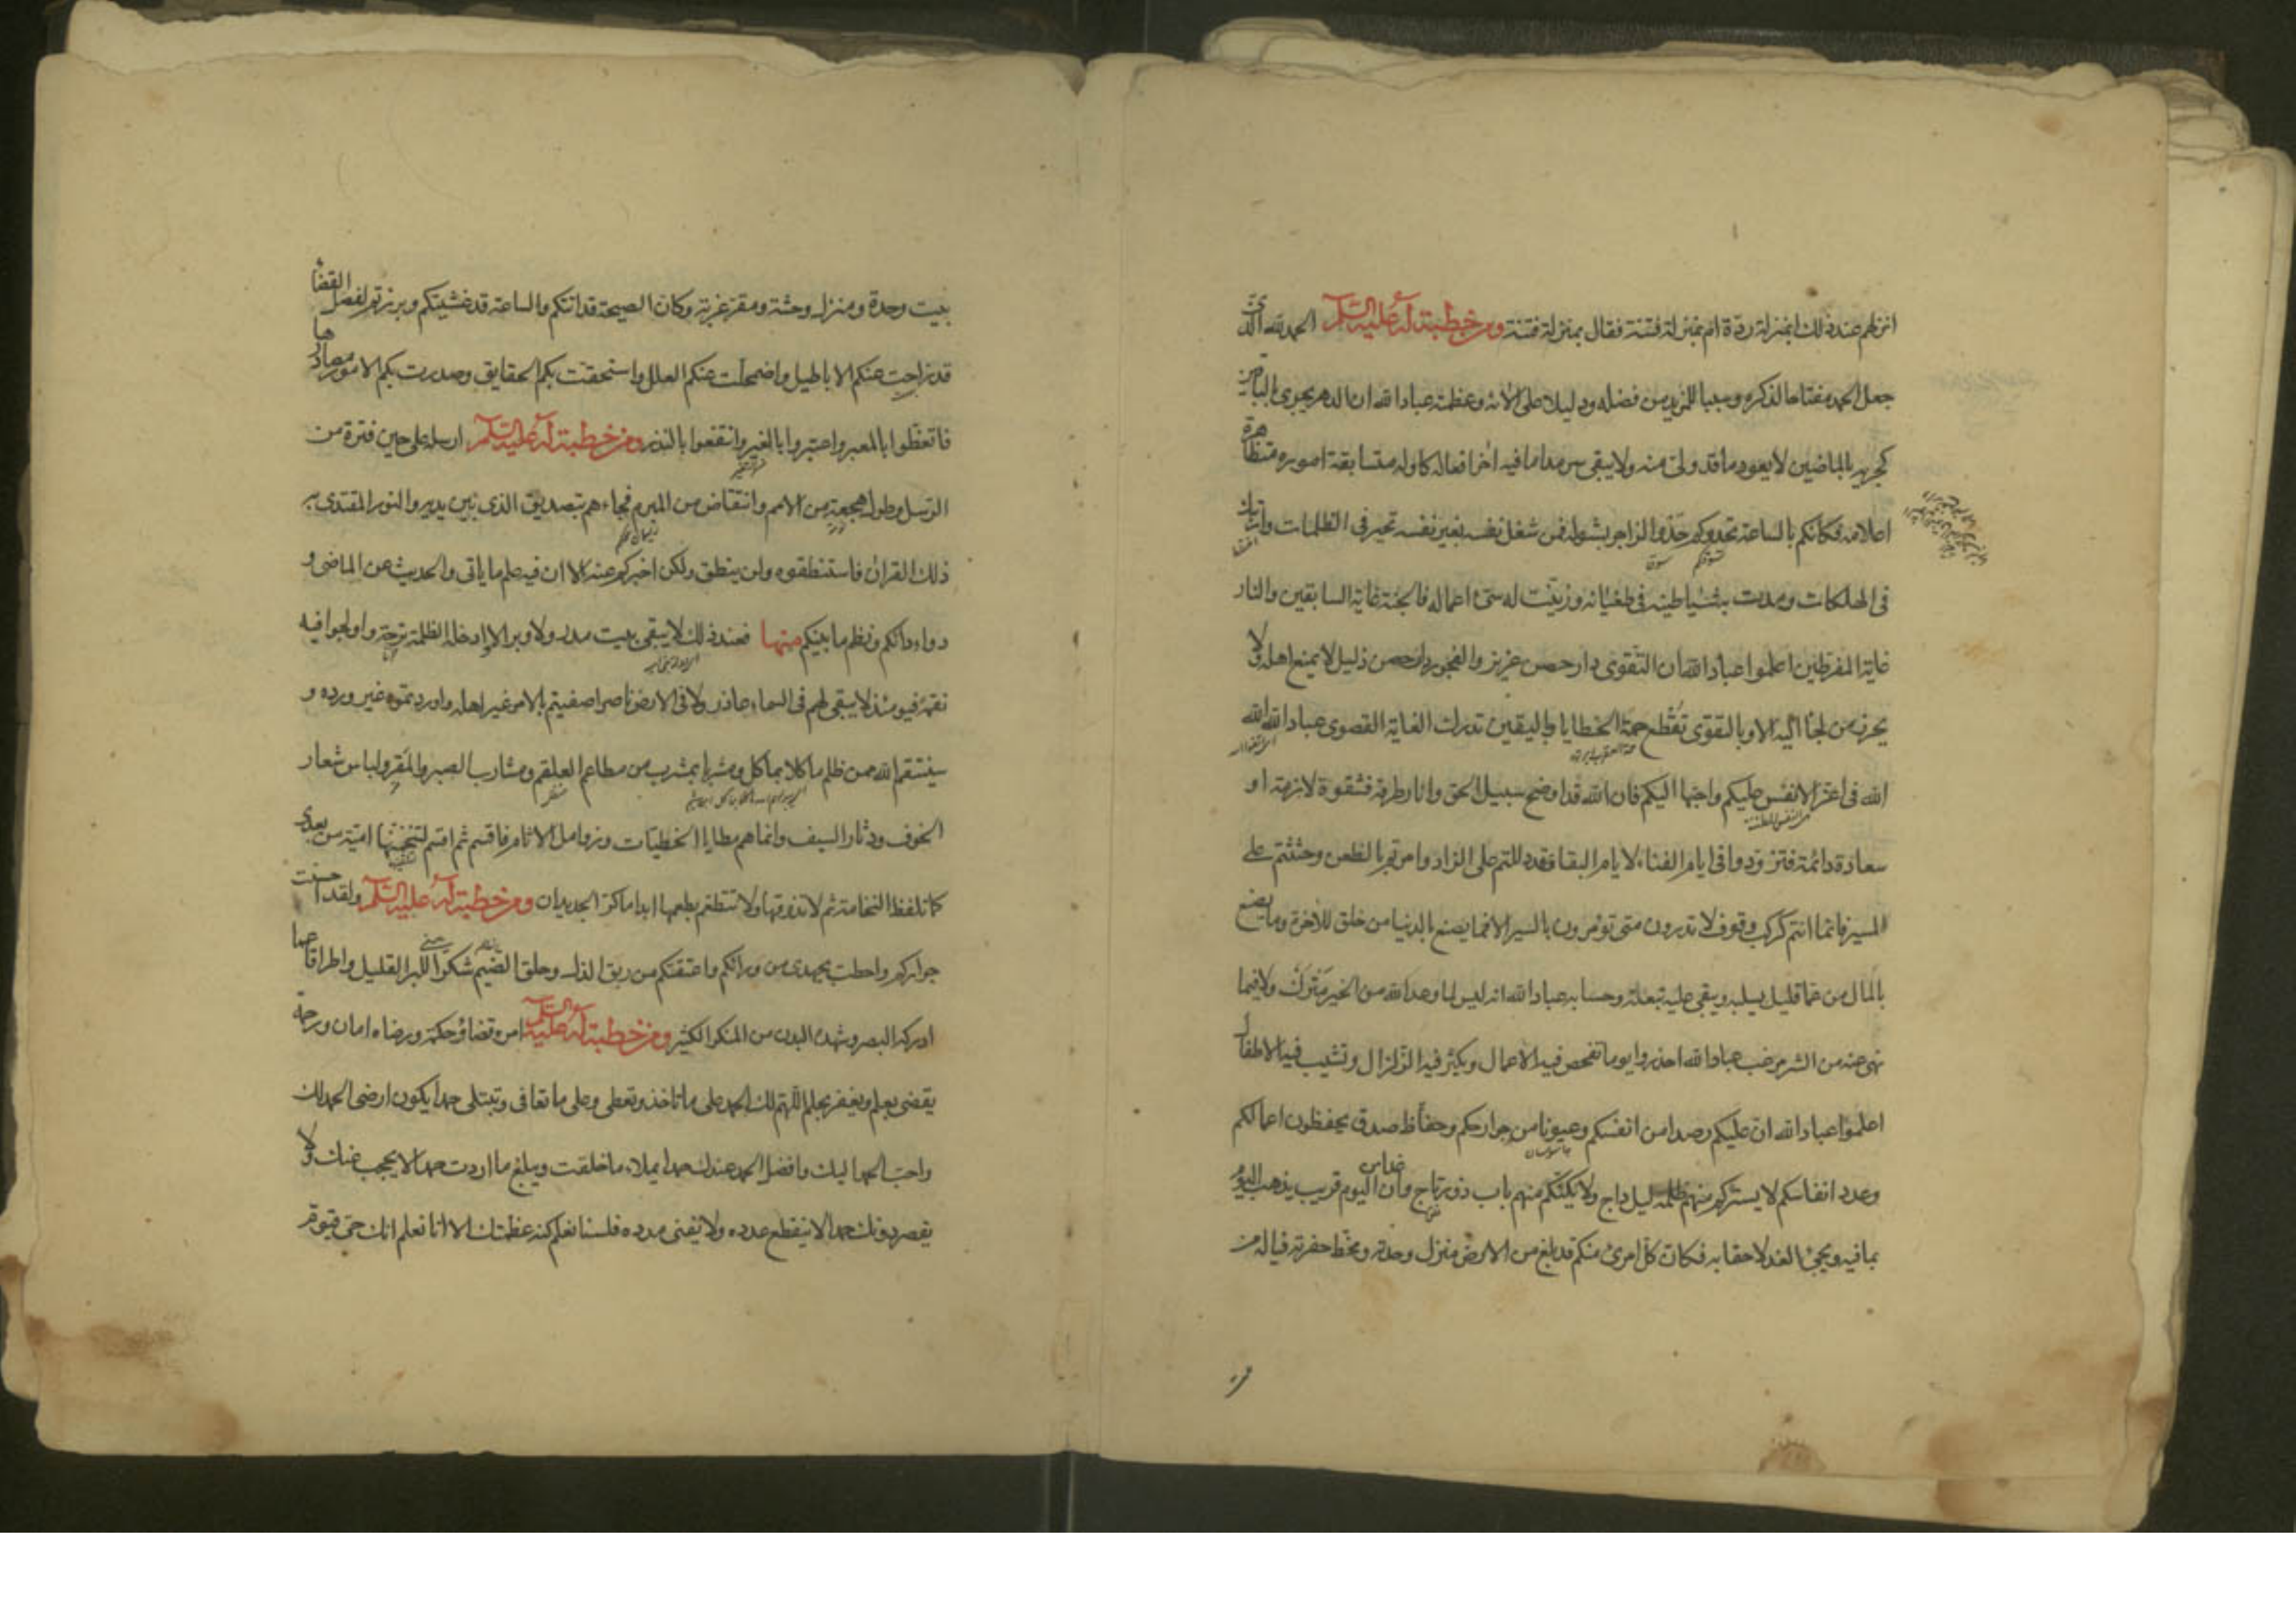 انزلهم عند ذلك ابمنزلة ردة ام بمنزلة فتنة فقال بمنزلة فتنة ومن خطبة له عليه السلم الحمد لله الذى
جعل الحمد مفتاحا لذكره وسببا للمزيد من فضله ودليلا على الائه وعظمته عباد الله ان الدهر يجرى بالباقين
كجريه بالماضين لا يعود ما قد ولى منه ولا يبقى سرمدا ما فيه اخر افعاله كاوله متسابقة اموره متظاهرة
اعلامه فكانكم بالساعة تحدوكم حذو الزاجر بشوله فمن شغل نفسه بغير نفسه تحير فى الظلمات وارتبك
فى الهلكات ومدت به شياطينه فى طغيانه وزينت له سيئ اعماله فالجنة غاية السابقين والنار
غاية المفرطين اعلموا عباد الله ان التقوى دار حصن عزيز والفجور دار حصن ذليل لا يمنع اهله ولا
يحرز من لجا اليه الا وبالتقوى تقطع حمة الخطايا وباليقين تدرك الغاية القصوى عباد الله الله
الله فى اعز الانفس عليكم واحبها اليكم فان الله قد اوضح سبيل الحق وانار طرقه فشقوة لازمة او
سعادة دائمة فتزودوا فى ايام الفناء لايام البقا فقد دللتم على الزاد وامرتم بالظعن وحثثتم على
المسير فانما انتم كركب وقوف لا تدرون متى تؤمرون بالسير الا فما يصنع بالدنيا من خلق للاخرة وما يصنع
بالمال من عما قليل يسلبه ويبقى عليه تبعته وحسابه عباد الله انه ليس لما وعد الله من الخير مترك ولا فيما
نهى عنه من الشر مرغب عباد الله احذروا يوما تفحص فيه الاعمال ويكثر فيه الزلزال وتشيب فيه الاطفال
اعلموا عباد الله ان عليكم رصدا من انفسكم وعيونا من جوارحكم وحفاظ صدق يحفظون اعمالكم
وعدد انفاسكم لا يستركم منهم ظلمة ليل داج ولا يكنكم منهم باب ذو رتاج وان غدا من اليوم قريب يذهب اليوم
بما فيه ويجئ الغد لاحقا به فكان كل امرئ منكم قد بلغ من الارض منزل وحدته ومخط حفرته فيا له من
بيت وحدة ومنزل وحشة ومقر غربة وكان الصيحة قد اتتكم والساعة قد غشيتكم وبرزتم لفصل القضا
قد زاحت عنكم الاباطيل واضمحلت عنكم العلل واستحقت بكم الحقايق وصدرت بكم الامور مصادرها
فاتعظوا بالعبر واعتبروا بالغير وانتفعوا بالنذر ومن خطبة له عليه السلم ارسله على حين فترة من
الرسل وطول هجعة من الامم وانتقاض من المبرم فجاءهم بتصديق الذى بين يديه والنور المقتدى به
ذلك القران فاستنطقوه ولن ينطق ولكن اخبركم عنه الا ان فيه علم ما ياتى والحديث عن الماضى و
دواء دائكم ونظم ما بينكم منها فعند ذلك لا يبقى بيت مدر ولا وبر الا ادخله الظلمة ترحة واولجوا فيه
نقمة فيومئذ لا يبقى لهم فى السماء عاذر ولا فى الارض ناصر اصفيتم بالامر غير اهله واوردتموه غير ورده و
سينتقم الله ممن ظلم ماكلا بماكل ومشربا بمشرب من مطاعم العلقم ومشارب الصبر والمقر ولباس شعار
الخوف ودثار السيف وانما هم مطايا الخطيئات وزوامل الاثام فاقسم ثم اقسم لتنخمنها امية من بعدى
كما تلفظ النخامة ثم لا تذوقها ولا تتطعم بطعمها ابدا ما كر الجديدان ومن خطبة له عليه السلم ولقد احسنت
جواركم واحطت بجهدى من ورائكم واعتقتكم من ربق الذل وحلق الضيم شكرا منى للبر القليل واطراقا عما
ادركه البصر وشهده البدن من المنكر الكثير ومن خطبة له عليه السلم امره قضاء وحكمة ورضاه امان ورحمة
يقضى بعلم ويغفر بحلم اللهم لك الحمد على ما تاخذ وتعطى وعلى ما تعافى وتبتلى حمدا يكون ارضى الحمد لك
واحب الحمد اليك وافضل الحمد عندك حمدا يملاء ما خلقت ويبلغ ما اردت حمدا لا يحجب عنك ولا
يقصر دونك حمدا لا ينقطع عدده ولا يفنى مدده فلسنا نعلم كنه عظمتك الا انا نعلم انك حى قيوم